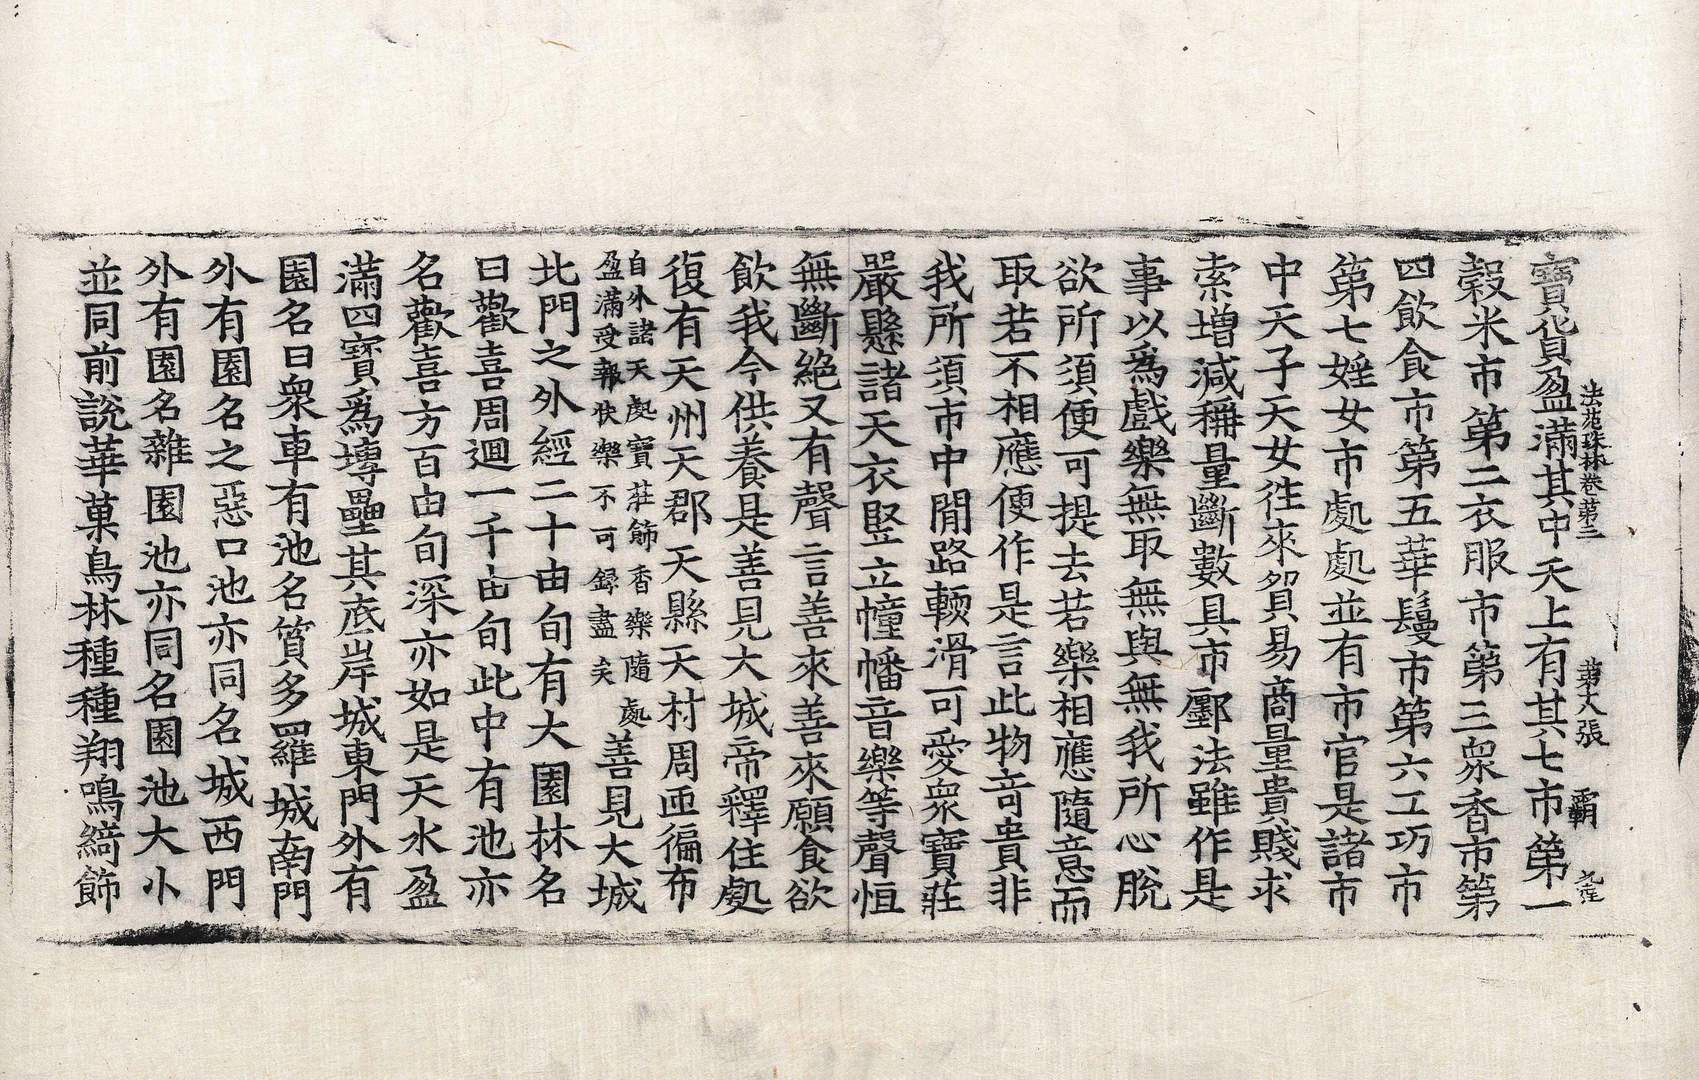 法苑珠林卷第三 第十八張 覇
寶貨盈滿其中天上有其七市第一
穀米市第二衣服市第三衆香市第
四飲食市第五華鬘市第六工巧市
第七婬女市處處並有市官是諸市
中天子天女往來貿易商量貴賤求
索增減稱量斷數具市廛法雖作是
事以爲戲樂無取無與無我所心脫
欲所須便可提去若樂相應隨意而
取若不相應便作是言此物奇貴非
我所須市中間路輭滑可愛衆寶莊
嚴懸諸天衣竪立幢幡音樂等聲恒
無斷絕又有聲言善來善來願食欲
飲我今供養是善見大城帝釋住處
復有天州天郡天縣天村周帀徧布
自外諸天處寶莊飾香樂隨處
盈滿受報快樂不可録盡矣
善見大城
北門之外經二十由旬有大園林名
曰歡喜周迴一千由旬此中有池亦
名歡喜方百由旬深亦如是天水盈
滿四寶爲塼壘其底岸城東門外有
園名曰衆車有池名質多羅城南門
外有園名之惡口池亦同名城西門
外有園名雜園池亦同名園池大小
並同前說華菓鳥林種種翔鳴綺飾